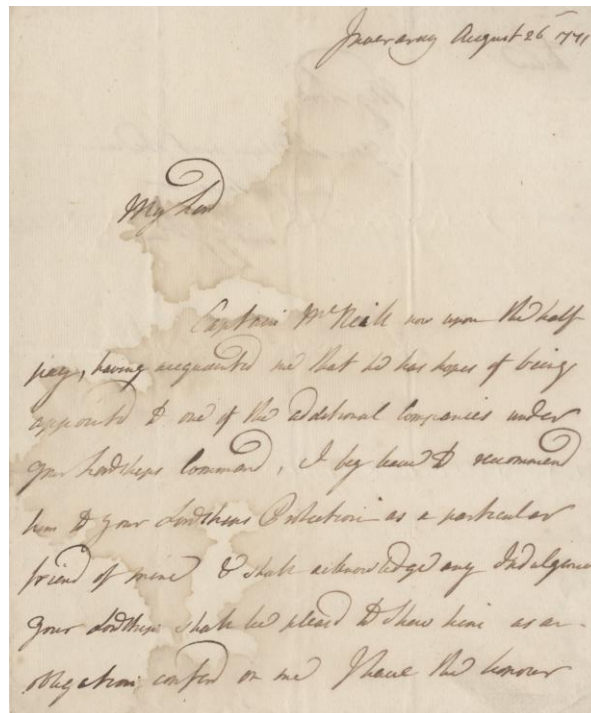 Inveraray August 26 1771
My Lord
Captain McNeill now upon the half
pay, having acquanted me that he has hopes of being
appointd to one of the additional Companies under
your Lordships Command, I beg leave to recommend
him to your Lordships Protection as a particular
friend of mine & shall acknowledge any Indulgence
your Lordship shall be pleasd to shew him as an
obligation conferd on me I have the honour